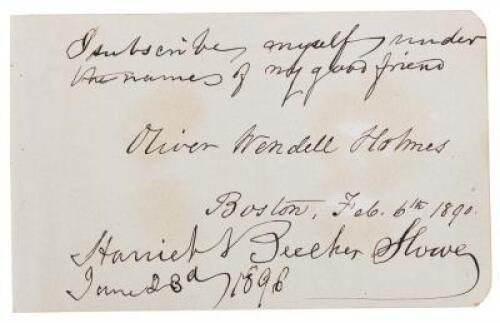 I subscribe, myself, under
the names of my good friend
Oliver Wendell Holmes.
Boston, Feb. 6th 1890.
Harriet Beecher Stowe
June 23d 1896